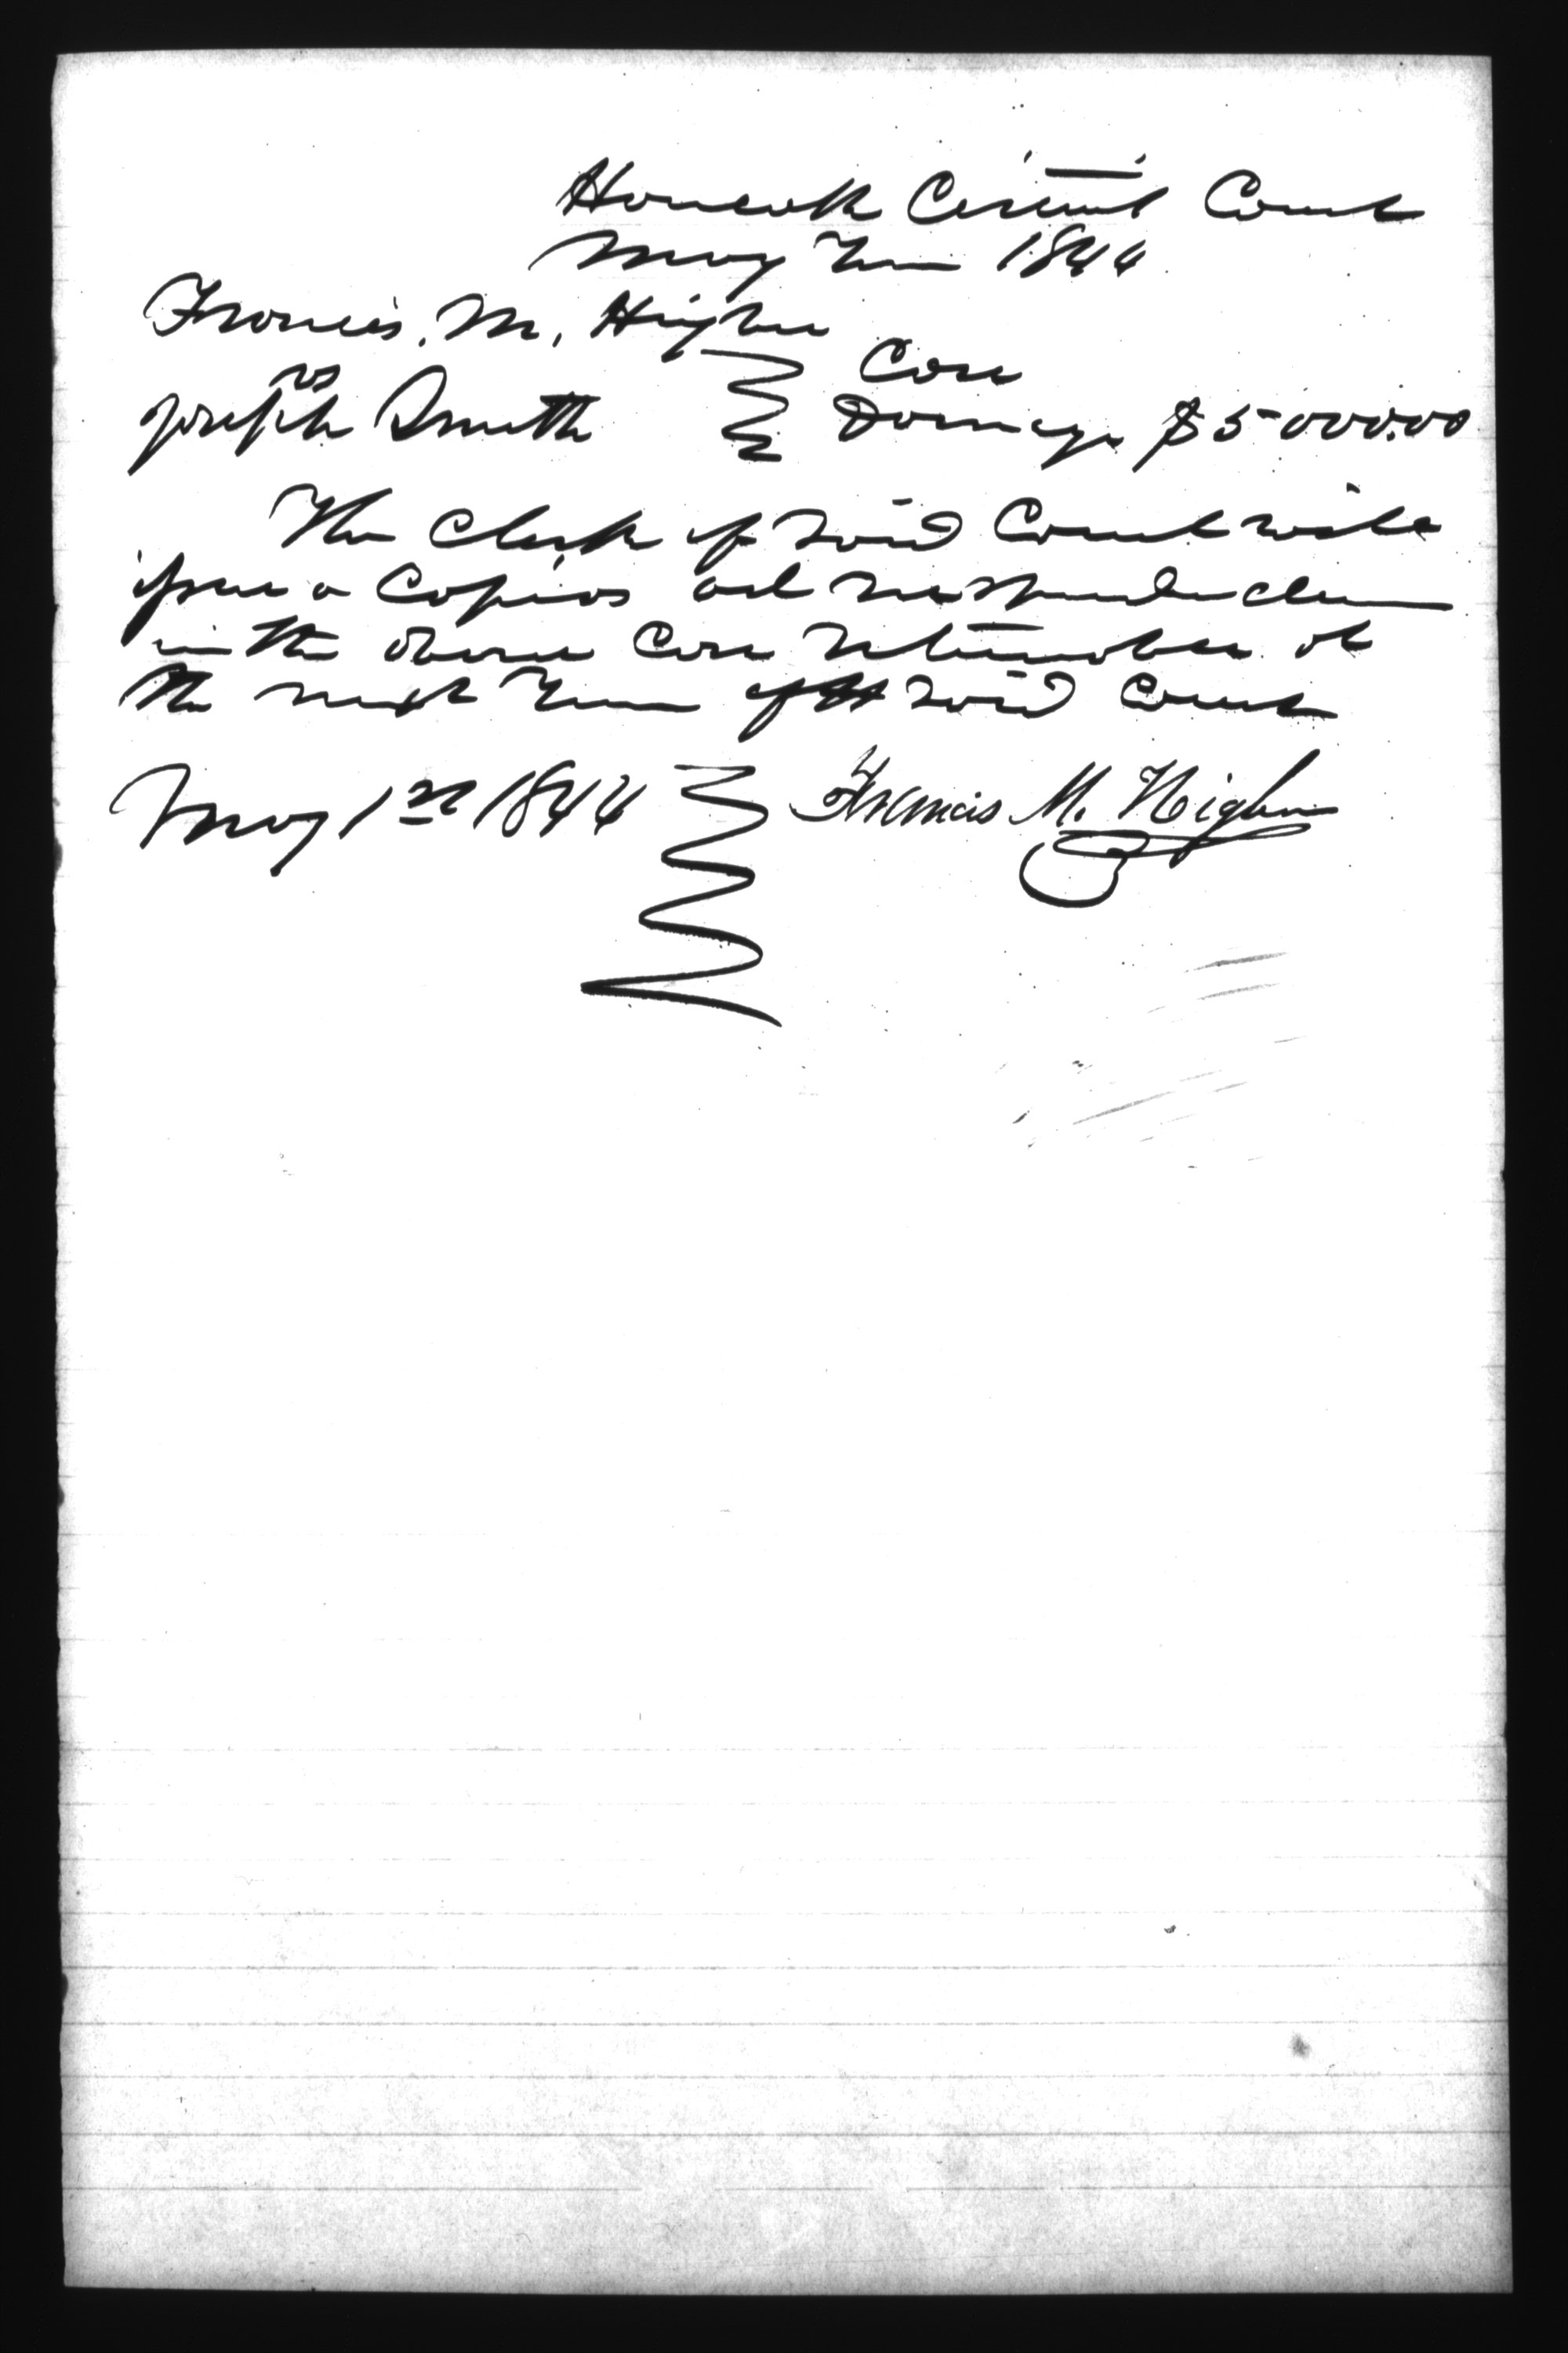 Hancock Circuit Court
May Term 1844
Francis. M. Higbee
vs
Case
Joseph Smith Damage $5000.00
The Clerk of said Court will
issue a Capias ad respondendum
in the above Case returnable at
the next Term of said Court
May 1st 1844 Francis M. Higbee